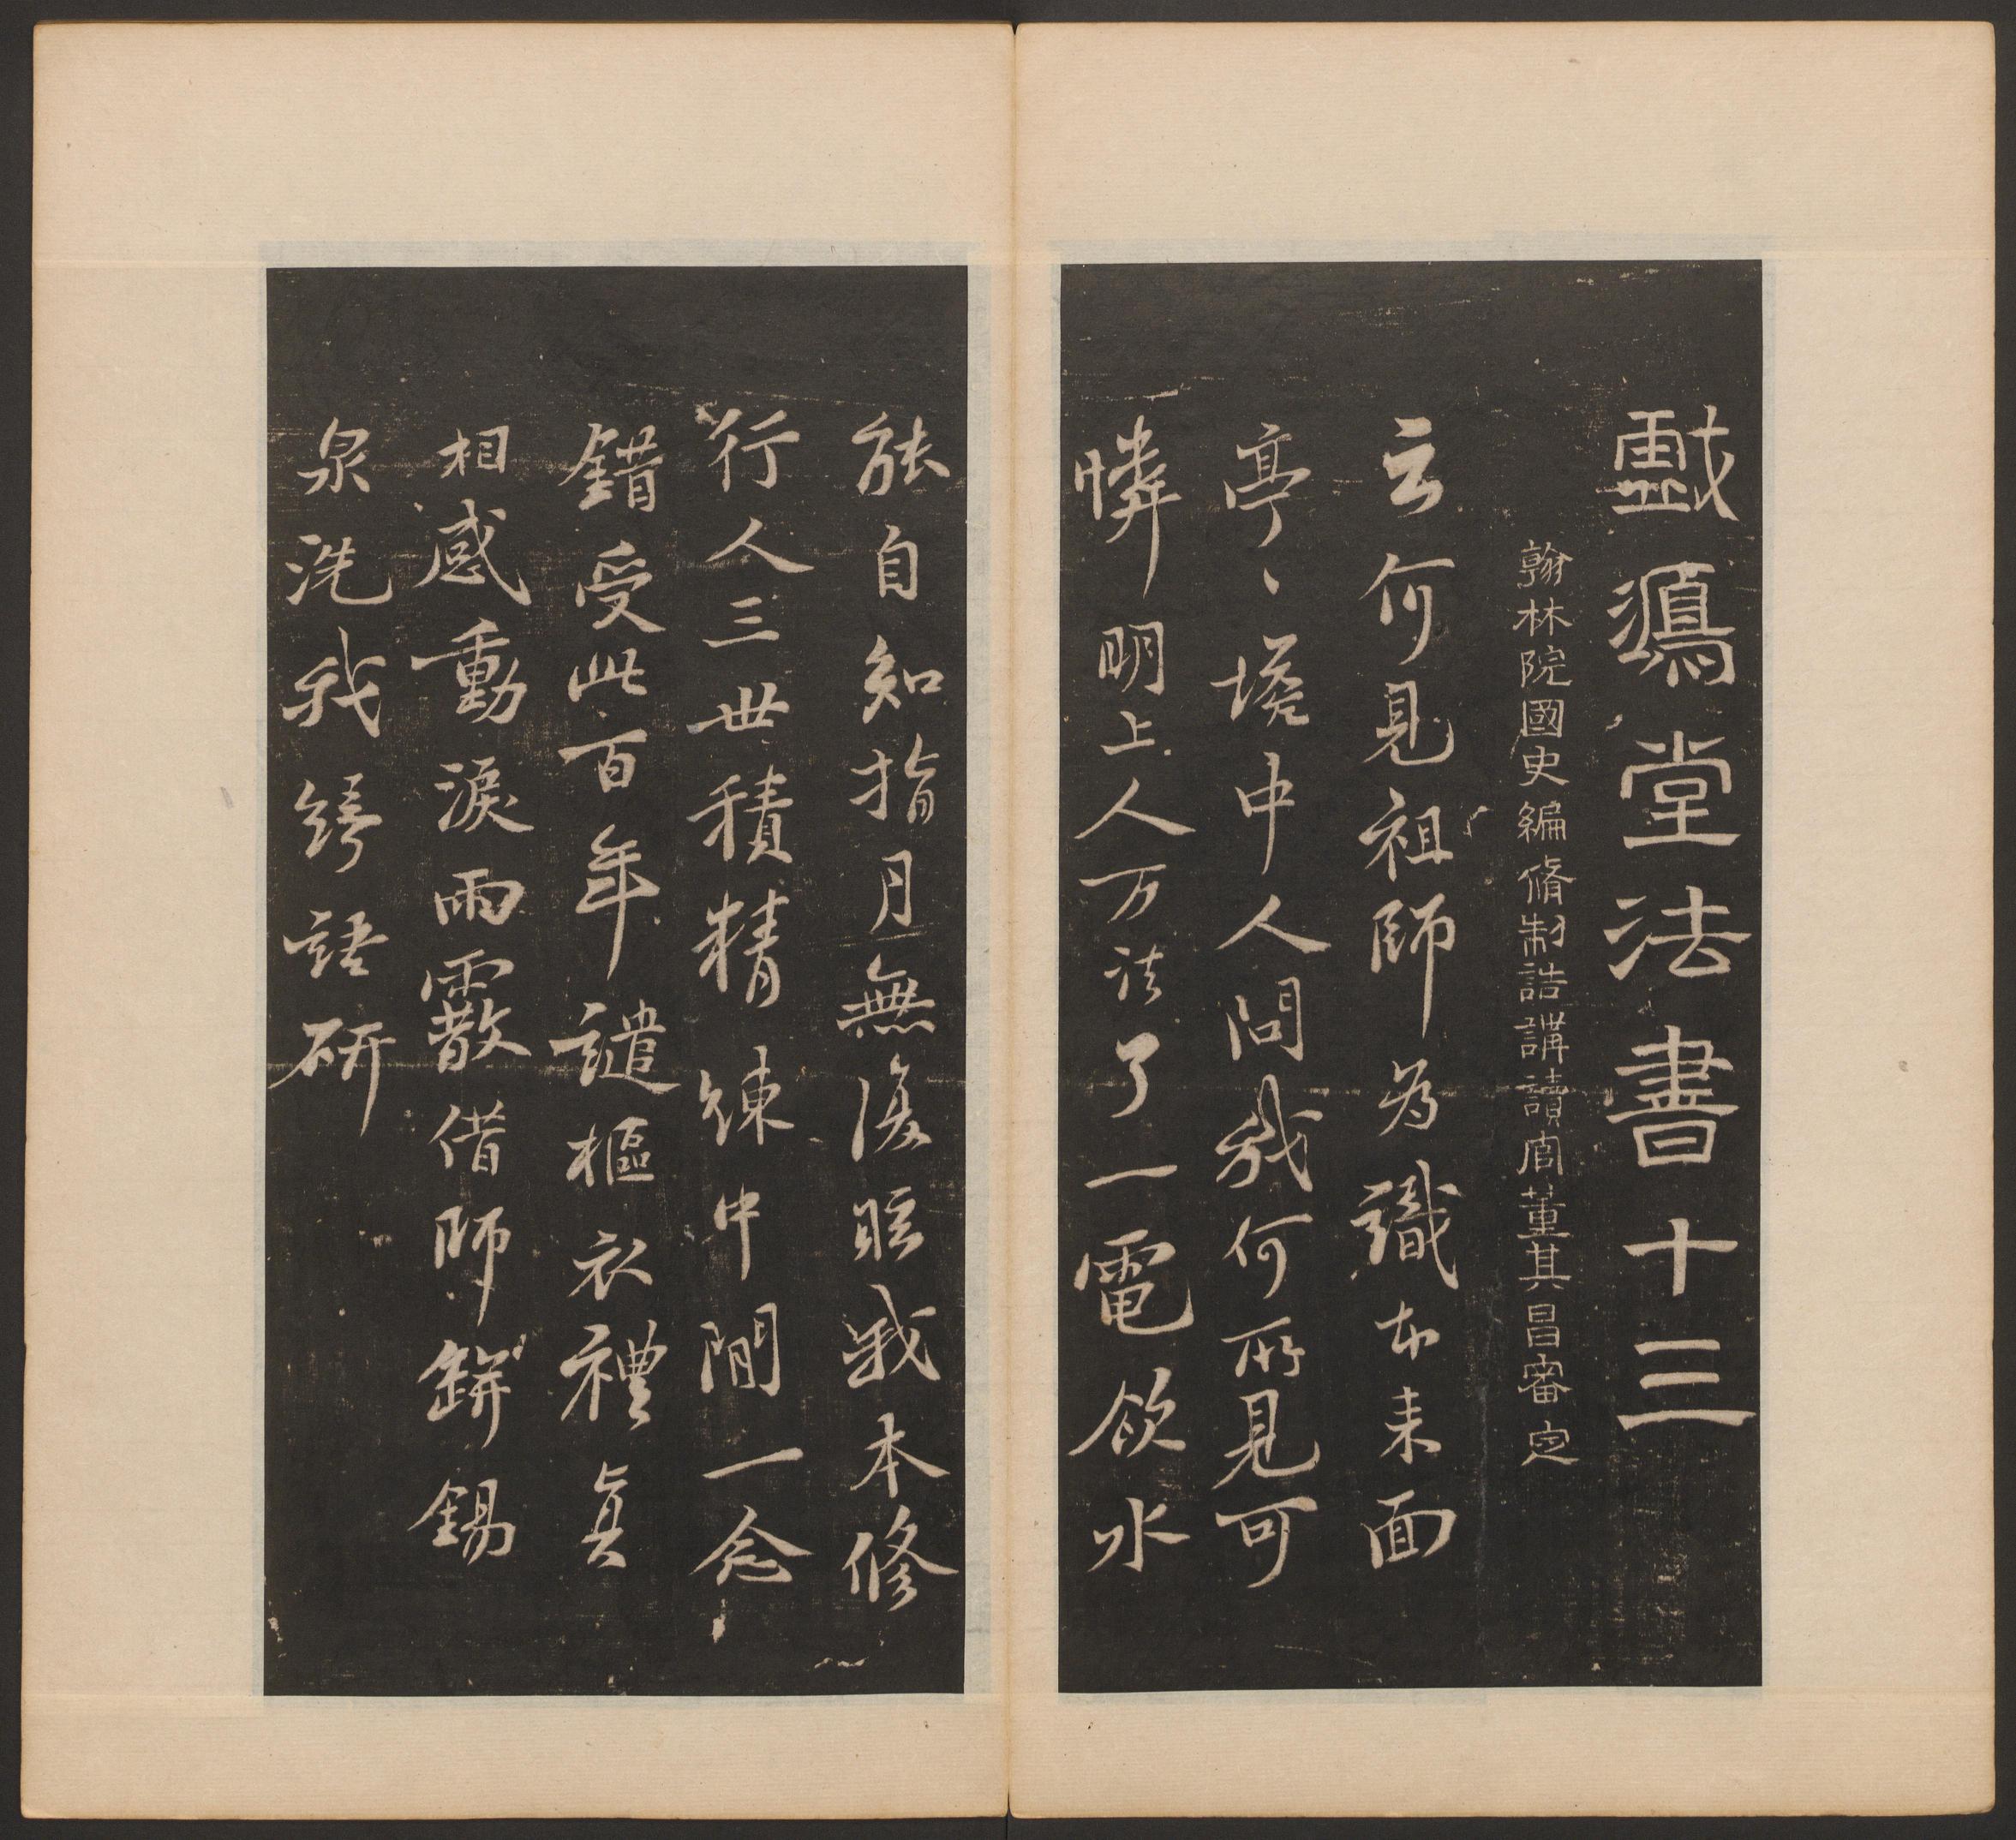 戲鴻堂法書十三
翰林院國史編脩制誥講讀官董其昌審定
云何見祖師為識本来面
亭、墖中人問我何所見可
憐明上人万法了一電飲水
能自知指月無復眩我本修
行人三世積精練中間一念
錯受此百年譴樞衣禮真
相感動淚雨霰借師錫缾
泉洗我綺語研